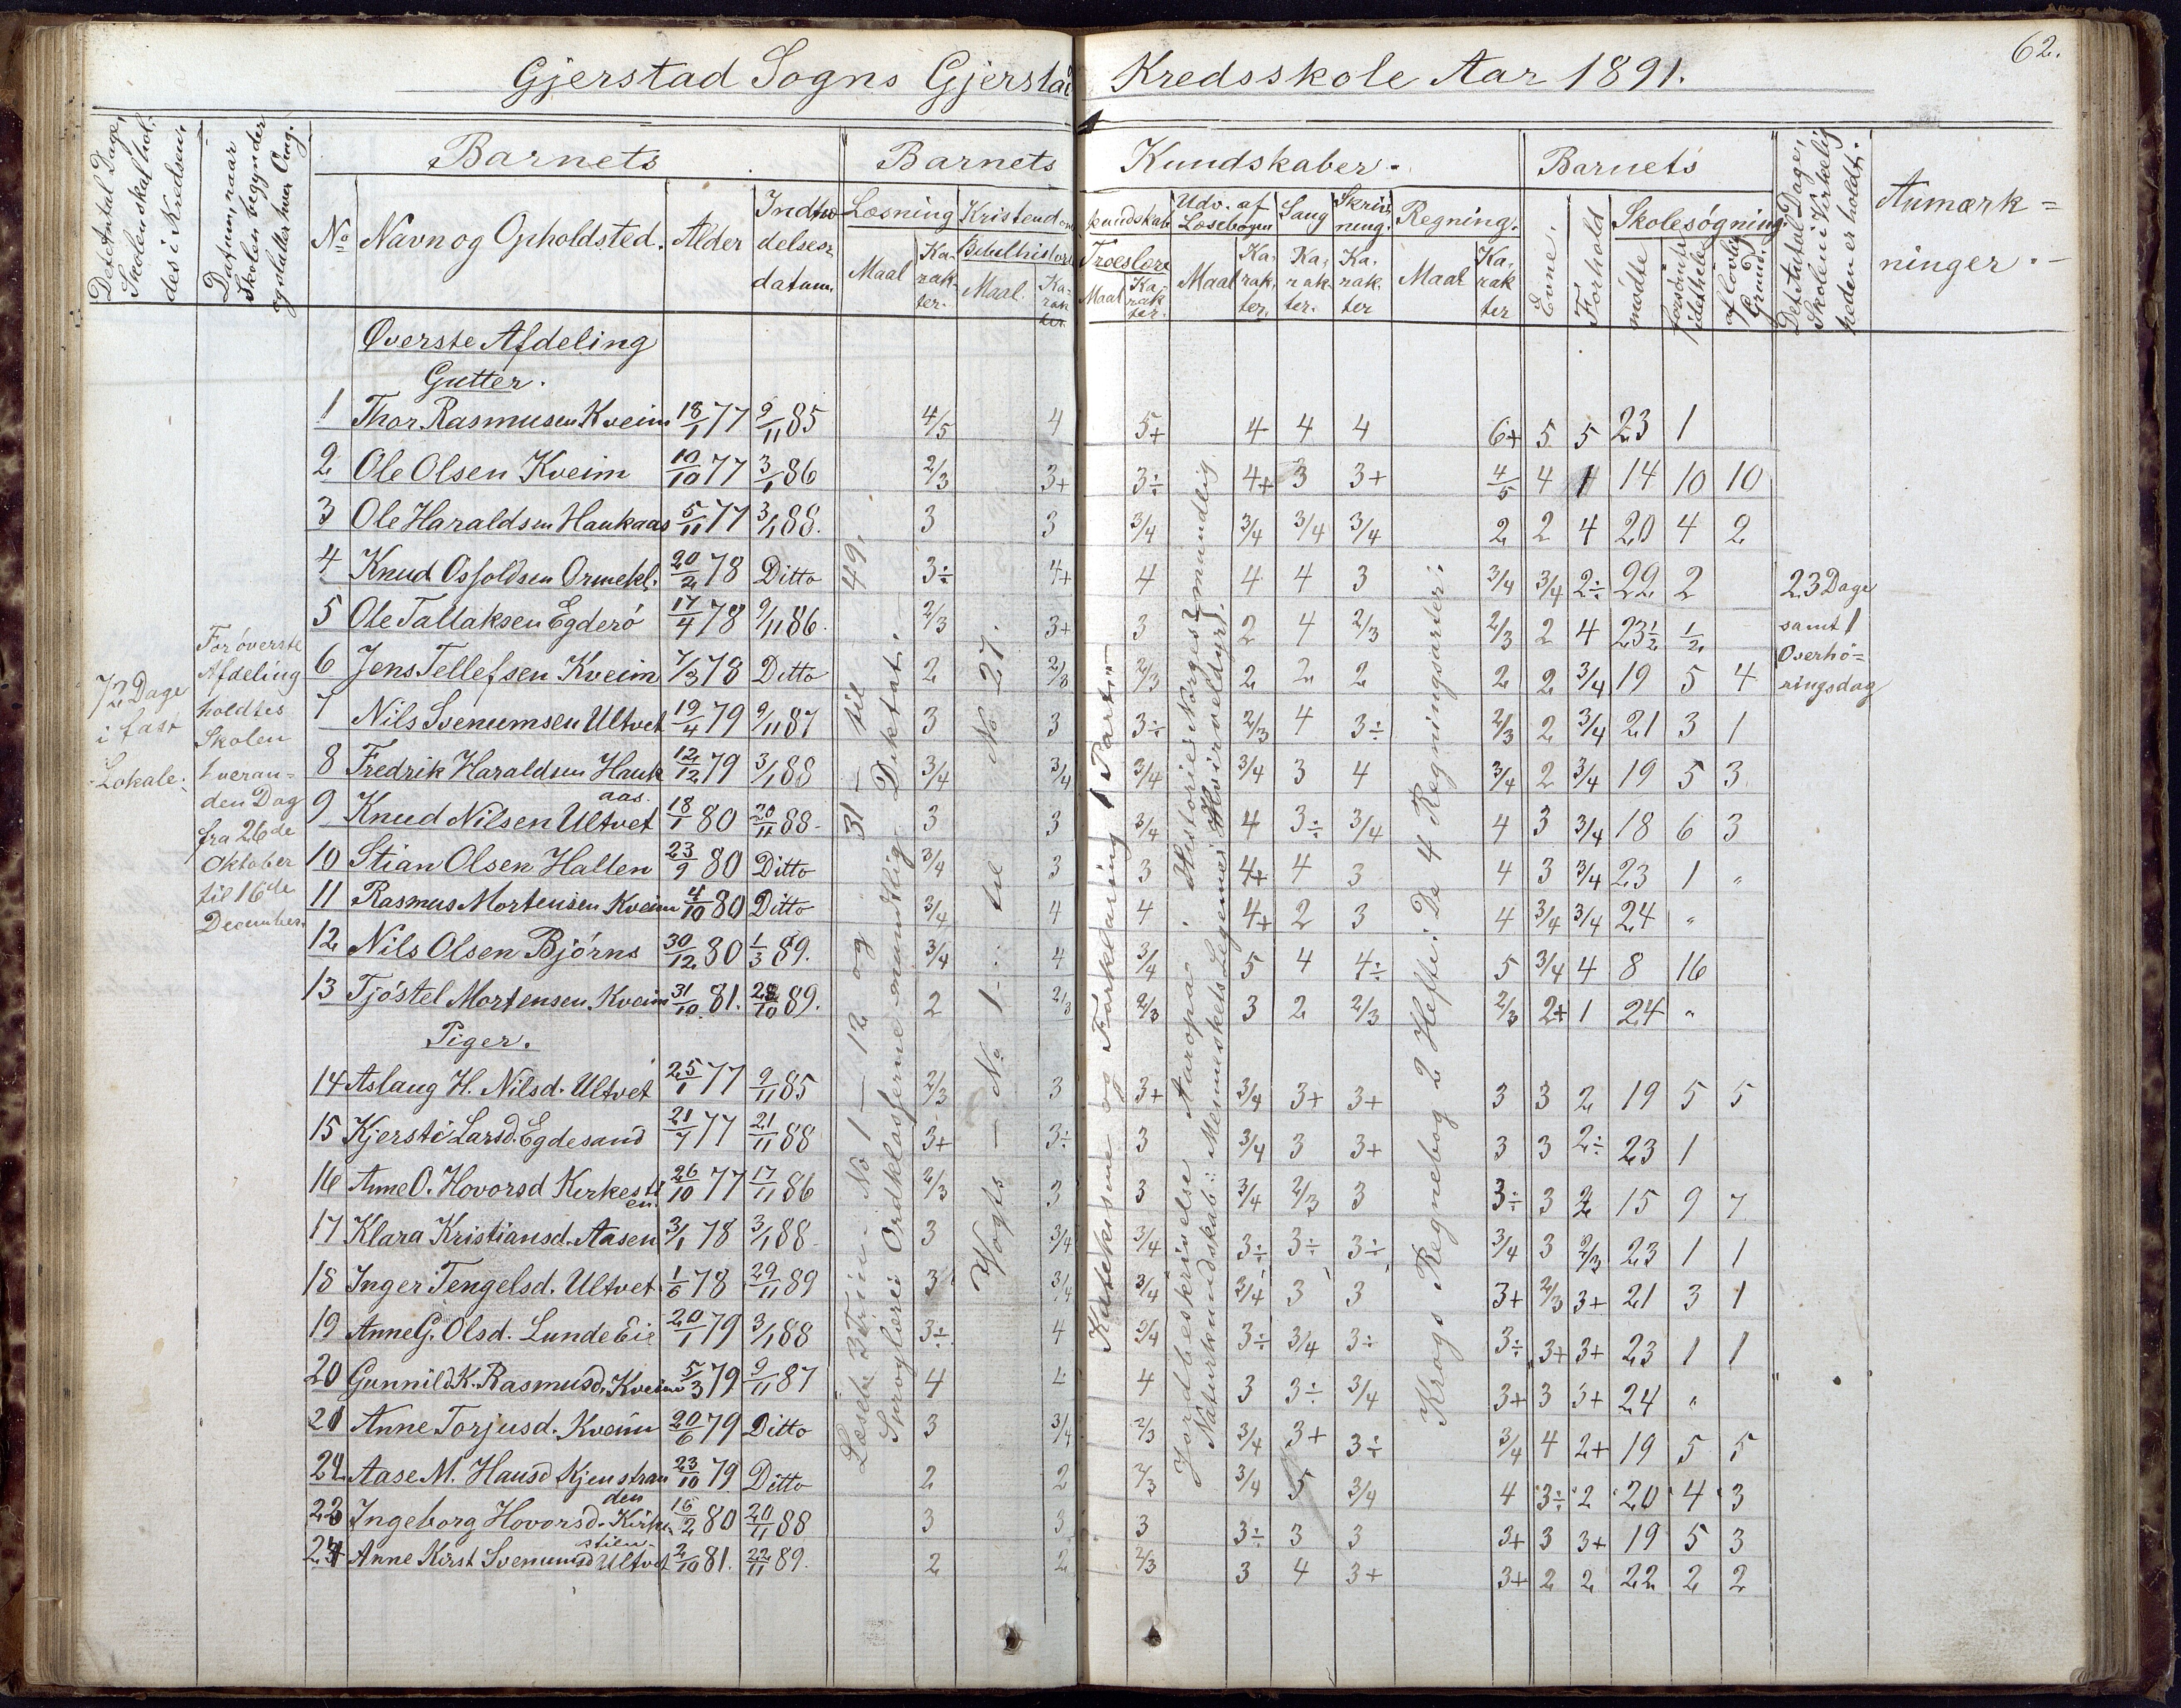 62.
Gjerstad Sogns Gjerstad Kredsskole Aar 1891.
Det Antal Dage, Skolen skal holdes i Kredsen.
Datum, naar Skolen begynder og slutter hver Omg.
Barnets
Barnets Kundskaber.
Barnets
Det Antal Dage, Skolen i Virkeligheden er holdt.
Anmærkninger.
No Navn og Opholdsted. Alder Indtrædelsesdatum.
Læsning Kristendomskundskab Udv. af Læsebogen Sang Skrivning. Regning.
Maal Karakter. Bibelhistorie Maal. Karakter. Troeslære Maal Karakter. Maal Karakter. Karakter. Karakter Maal Karakter
Evne. Forhold Skolesøgning. mødte forsømte idethele af lovlig Grund.
Øverste Afdeling
Gutter.
1 Thor Rasmusen Kveim 18/1 77 9/11 85 4/5 4 5+ 4 4 4 6+ 5 5 23 1
2 Ole Olsen Kveim 10/10 77 3/1 86 2/3 3+ 3÷ 4+ 3 3+ 4/5 4 4 14 10 10
3 Ole Haraldsen Haukaas 5/11 77 3/1 88. 3 3 3/4 3/4 3/4 3/4 2 2 4 20 4 2
4 Knud Osfoldsen Ormekl. 20/2 78 Ditto 3÷ 4+ 4 4 4 3 3/4 3/4 2÷ 22 2
5 Ole Tallaksen Egderó 17/4 78 9/11 86. 2/3 3+ 3 2 4 2/3 2/3 2 4 23½ ½
6 Jens Tellefsen Kveim 7/3 78 Ditto 2 2/3 2/3 2 2 2 2 2 3/4 19 5 4
7 Nils Svenumsen Ultvet 19/4 79 9/11 87 3 3 3÷ 2/3 4 3÷ 2/3 2 3/4 21 3 1
8 Fredrik Haraldsen Haukaas. 12/12 79 3/1 88 3/4 3/4 3/4 3/4 3 4 3/4 2 3/4 19 5 3
9 Knud Nilsen Ultvet 18/1 80 20/11 88. 3 3 3/4 4 3÷ 3/4 4 3 3/4 18 6 3
10 Stian Olsen Halten 23/9 80 Ditto 3/4 3 3 4+ 4 3 4 3 3/4 23 1 "
11 Rasmus Mortensen Kveim 4/10 80 Ditto 3/4 4 4 4+ 2 3 4 3/4 3/4 24 "
12 Nils Olsen Bjørns 30/12 80 1/3 89. 3/4 4 3/4 5 4 4÷ 5 3/4 4 8 16
13 Tjóstel Mortensen Kveim 31/10 81. 28/10 89. 2 2/3 2/3 3 2 2/3 2/3 2+ 1 24 "
Piger.
14 Aslaug H. Nilsd. Ultvet 25/1 77 9/11 85 2/3 3 3+ 3/4 3+ 3+ 3 3 2 19 5 5
15 Kjersti Larsd. Egdesand 21/7 77 21/11 88 3+ 3÷ 3 3/4 3 3+ 3 3 2÷ 23 1
16 Anne O. Hovorsd Kirkestien. 26/10 77 17/11 86 2/3 3 3 3/4 2/3 3 3÷ 3 2 15 9 7
17 Klara Kristiansd. Aasen 3/1 78 3/1 88. 3 3/4 3/4 3÷ 3÷ 3÷ 3/4 3 2/3 23 1 1
18 Inger Tengelsd. Ultvet 1/6 78 29/11 89 3 3/4 3/4 3/4 3 3 3+ 2/3 3+ 21 3 1
19 Anne G. Olsd. Lunde Eie 20/1 79 3/1 88 3÷ 4 3/4 3÷ 3/4 3÷ 3÷ 3+ 3+ 23 1 1
20 Gunnild K. Rasmusd. Kveim 5/3 79 9/11 87 4 4 4 3 3÷ 3/4 3+ 3 3+ 24 "
21 Anne Torjusd. Kveim 20/6 79 Ditto 3 3/4 2/3 3/4 3+ 3÷ 3/4 4 2+ 19 5 5
22 Aase M. Hansd Kjenstranden 23/10 79 Ditto 2 2 2/3 3/4 5 3/4 4 3÷ 2 20 4 3
23 Ingeborg Hovorsd. Kirkestien. 16/2 80 20/11 88 3 3 3 3÷ 3 3 3+ 3 3+ 19 5 3
24 Anne Kirst Svenumsd Ultvet 2/10 81. 22/11 89. 2 2 2/3 3 4 3+ 3+ 2 2 22 2 2
72 Dage
i fast
Lokale.
For øverste
Afdeling
holdtes
Skolen
hveran=
den Dag
fra 26de
Oktober
til 16de
December.
Læseb. 3 Trin. No 1 — 12 og 31 — til 49.
Sproglære: Ordklasserne mundtlig. Diktat.
Vogts — No 1 — til No 27.
Katekisme og Forklaring 1 Part
Jordbeskrivelse Auropa. Historie: Norges mundtlig
Naturkundskab: Menneskets Legeme. Hvirveldyr.
Krogs Regnebog 2 Hefte: De 4 Regningsarter.
23 Dage
samt 1
Overhó=
ringsdag